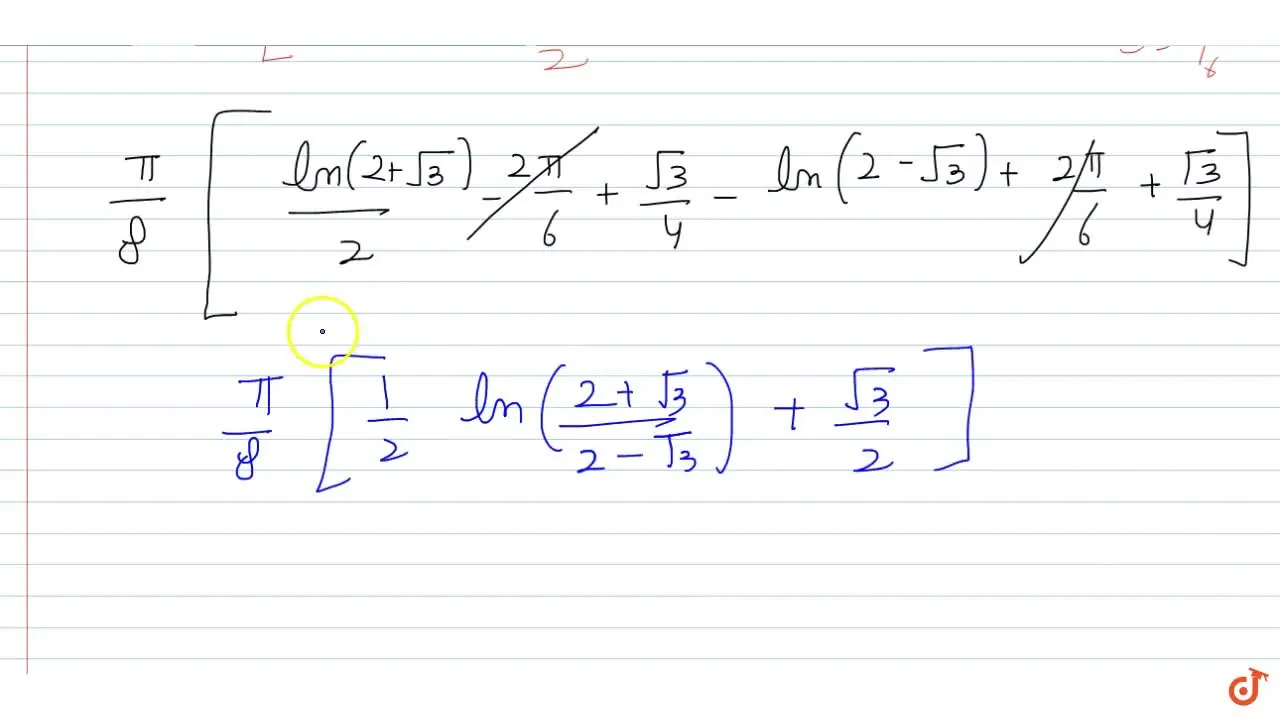 π/8 [ ln(2+√3)/2 - 2π/6 + √3/4 - ln(2-√3) + 2π/6 + √3/4 ]
π/8 [ 1/2 ln( (2+√3)/(2-√3) ) + √3/2 ]